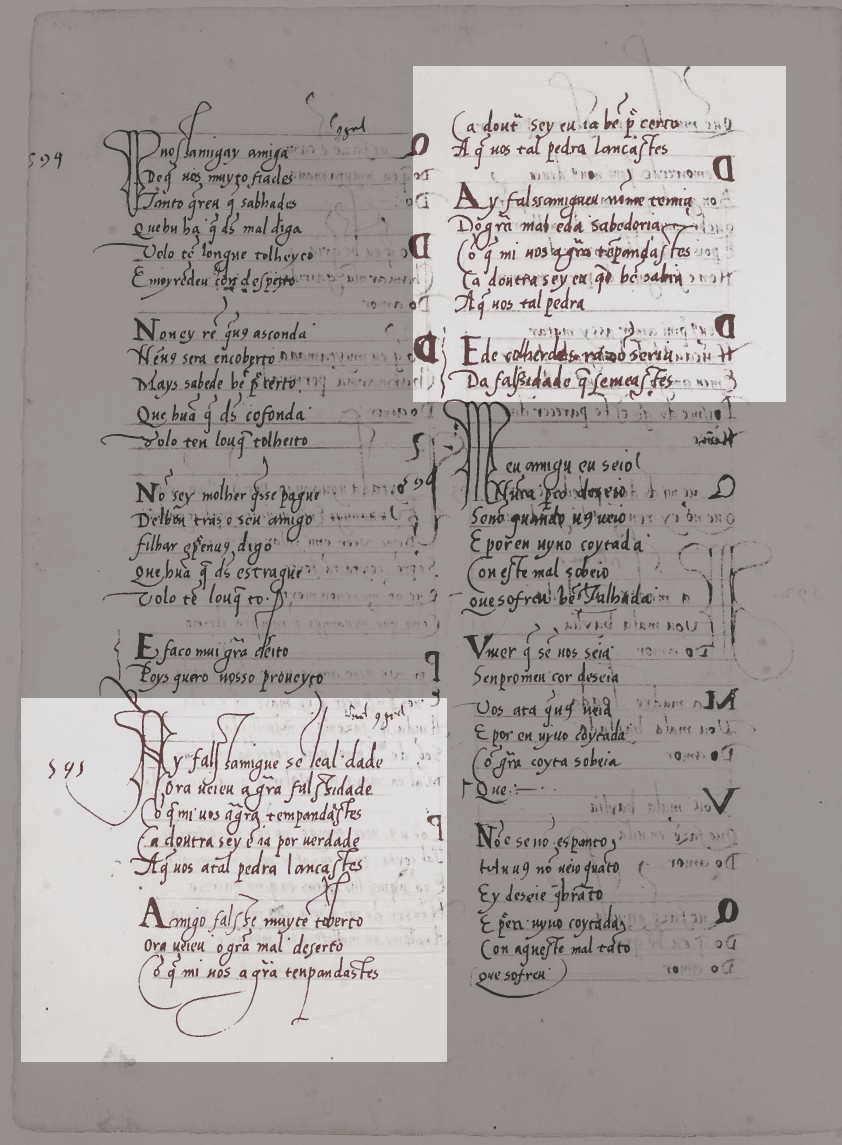 594
Pnossamigay amiga
De q̄ uos muyto fiades
Tanto q̄reu q̄ sabhades
Quehu ha q̄ d̄s mal diga
Uolo tē louque tolheyto
E moyredeu
Nōney rē
asconda
sera encoberto
Mays sabede bē
Que hūa q̄ d̄s cōfonda
Uolo ten louq̄ tolheito
Nō sey molher q̄sse pague
tras o seu amigo
filhar
digo
Que hūa q̄ d̄s estrague
Uolo tē louq̄ to
E faco mui gr̄a deito
Poys quero uosso proueyto
595
Ay falssamigue se leal dade
Ora ueieu a gr̄a falssidade
Cō q̄ mi uos a gr̄a tempandastes
Ca doutra sey ē ia por uerdade
A q̄ uos atal pedra lancastes
Amigo falsse muyte
ora ueieu o gr̄a mal deserto
Cō q̄ mi uos a gr̄a tenpandastes
Ca dout̄ sey eu ia bē p̄ certo
A q̄ uos tal pedra lancastes
Ay falssamigueu nōme temia
Do gr̄a mal eda sabedoria
Cō q̄ mi uos a gr̄a tēpandastes
Ca doutra sey eu q̄o bē sabia
A q̄ uos tal pedra
E de colherdes razō seria
Da falssidade q̄ semeastes
594
Meu amigu eu seio
Nūca
Senō quando
ueio
E por en uyuo coytada
Con este mal sobeio
que sofreu bē Talhada
Uiuer q̄ sē uos seia
Senpromeu cor deseia
Uos ata
ueia
E por en uyuo coytada
Cō gr̄a coyta sobeia
Que
Nō e senō espanto
nō ueio quāto
Ey deseie
uyuo coytada
Con aqueste mal tāto
que sofreu